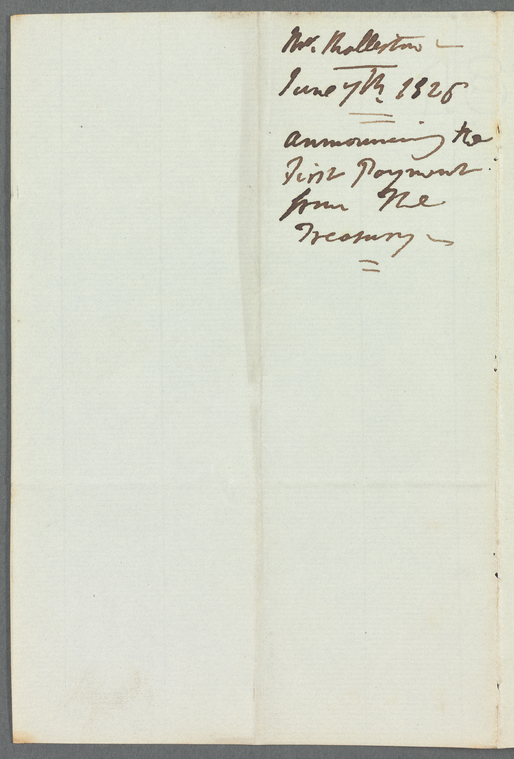 Mr. Rolleston –
June 7th. 1826
announcing the
First Payment
from The
Treasury –